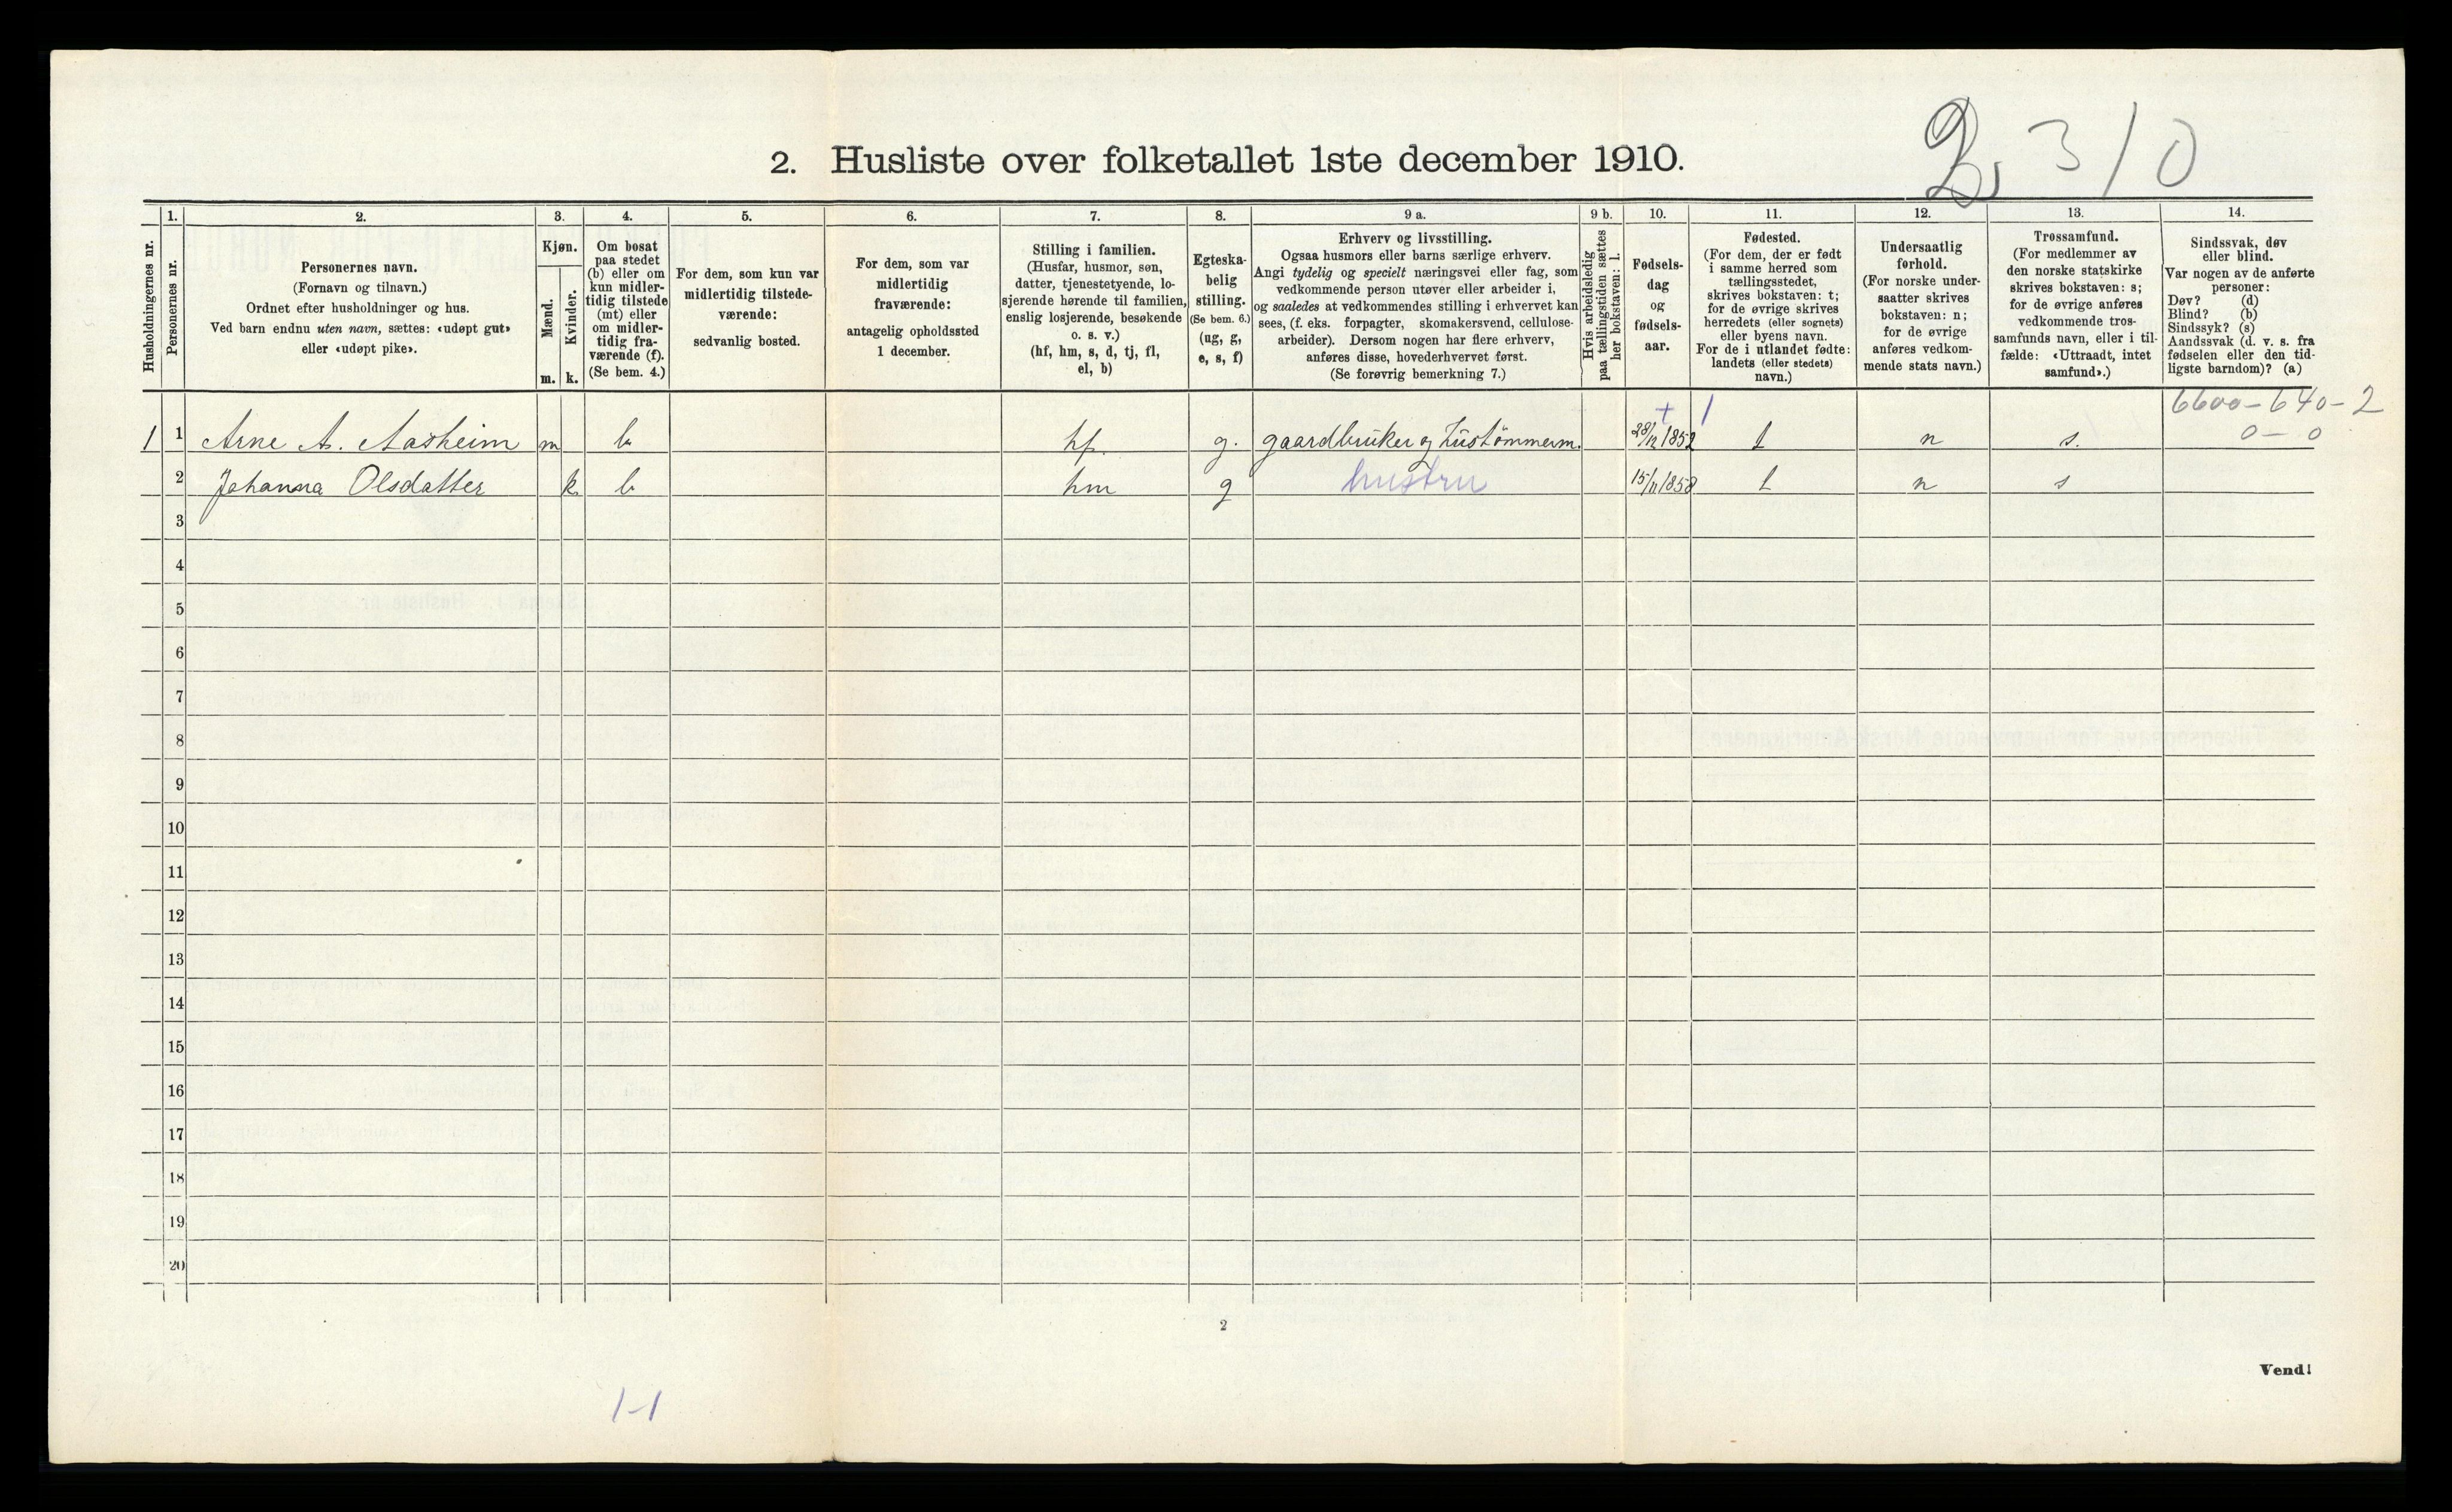 2. Husliste over folketallet 1ste december 1910.
310
Husholdningernes nr.
1.
Personernes nr.
2.
Personernes navn.
(Fornavn og tilnavn.)
Ordnet efter husholdninger og hus.
Ved barn endnu uten navn, sættes: «udøpt gut»
eller «udøpt pike».
3.
Kjøn.
Mænd.
Kvinder.
m. k.
4.
Om bosat
paa stedet
(b) eller om
kun midler-
tidig tilstede
(mt) eller
om midler-
tidig fra-
værende (f).
(Se bem. 4.)
5.
For dem, som kun var
midlertidig tilstede-
værende:
sedvanlig bosted.
6.
For dem, som var
midlertidig
fraværende:
antagelig opholdssted
1 december.
7.
Stilling i familien.
(Husfar, husmor, søn,
datter, tjenestetyende, lo-
sjerende hørende til familien,
enslig losjerende, besøkende
o. s. v.)
(hf, hm, s, d, tj, fl,
el, b)
8.
Egteska-
belig
stilling.
(Se bem. 6.)
(ug, g,
e, s, f)
9 a.
Erhverv og livsstilling.
Ogsaa husmors eller barns særlige erhverv.
Angi tydelig og specielt næringsvei eller fag, som
vedkommende person utøver eller arbeider i,
og saaledes at vedkommendes stilling i erhvervet kan
sees, (f. eks. forpagter, skomakersvend, cellulose-
arbeider). Dersom nogen har flere erhverv,
anføres disse, hovederhvervet først.
(Se forøvrig bemerkning 7.)
9 b.
Hvis arbeidsledig
paa tællingstiden sættes
her bokstaven: l.
10.
Fødsels-
dag
og
fødsels-
aar.
11.
Fødested.
(For dem, der er født
i samme herred som
tællingsstedet,
skrives bokstaven: t;
for de øvrige skrives
herredets (eller sognets)
eller byens navn.
For de i utlandet fødte:
landets (eller stedets)
navn.)
12.
Undersaatlig
forhold.
(For norske under-
saatter skrives
bokstaven: n;
for de øvrige
anføres vedkom-
mende stats navn.)
13.
Trossamfund.
(For medlemmer av
den norske statskirke
skrives bokstaven: s;
for de øvrige anføres
vedkommende tros-
samfunds navn, eller i til-
fælde: «Uttraadt, intet
samfund».)
14.
Sindssvak, døv
eller blind.
Var nogen av de anførte
personer:
Døv? (d)
Blind? (b)
Sindssyk? (s)
Aandssvak (d. v. s. fra
fødselen eller den tid-
ligste barndom)? (a)
6600-640-2
0-0
1 1 Arne A. Aasheim m b hf. g. gaardbruker og Hustømmerm. 28/12 1852 t n s.
2 Johanna Olsdatter k b hm g hustru 15/11 1858 t n s
3
4
5
6
7
8
9
10
11
12
13
14
15
16
17
18
19
20
2
Vend!
1-1